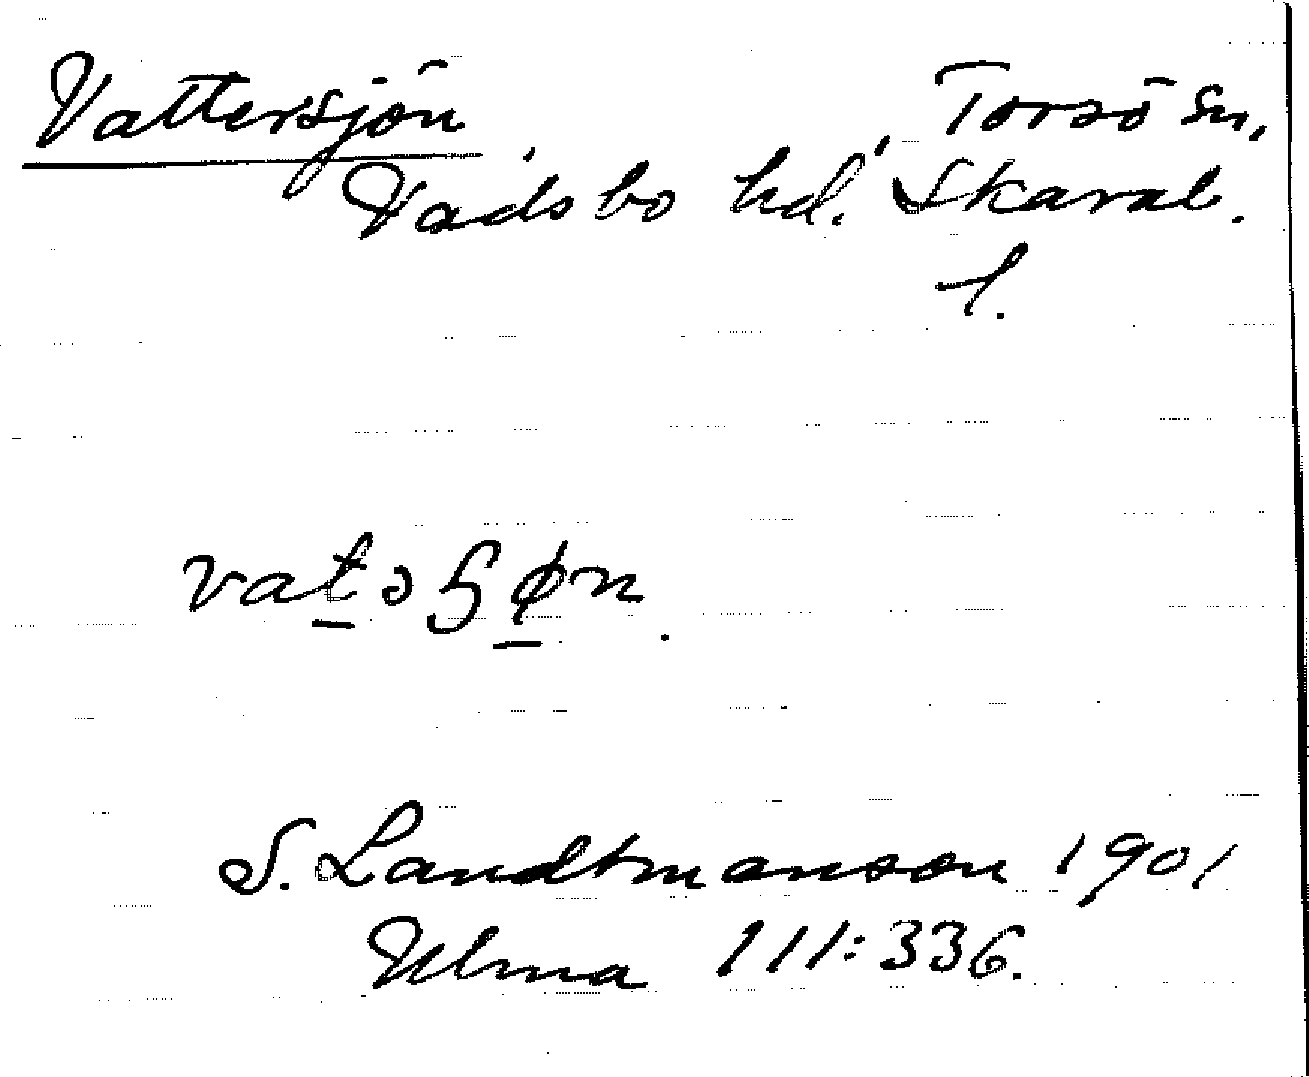 Vattersjön, Torsö sn,
Vadsbo hd. Skarab.
l.
vatəʃøn.
S. Landtmanson 1901
Ulma 111:336.